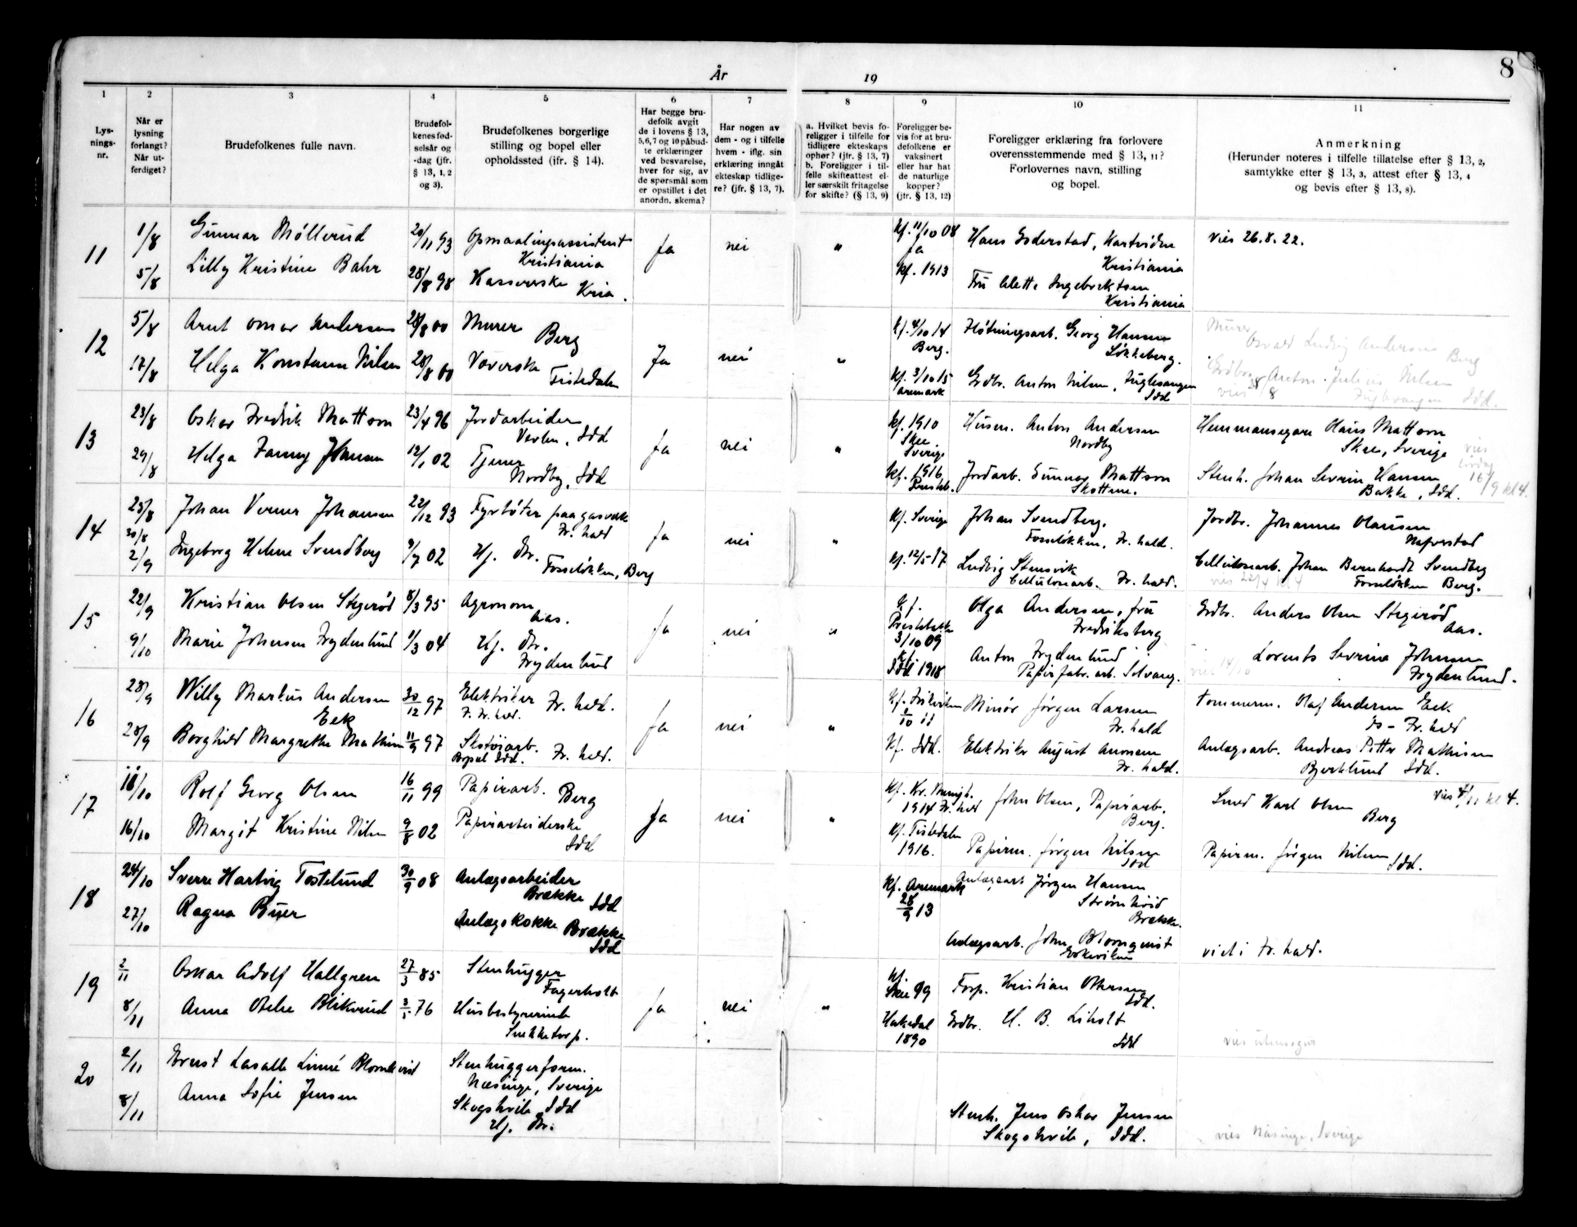 8
År 19
1 2 3 4 5 6 7 8 9 10 11
Lys-
nings-
nr.
Når er
lysning
forlangt?
Når ut-
ferdiget?
Brudefolkenes fulle navn.
Brudefol-
kenes fød-
selsår og
-dag (jfr.
§ 13, 1, 2
og 3).
Brudefolkenes borgerlige
stilling og bopel eller
opholdssted (ifr. § 14).
Har begge bru-
defolk avgit
de i lovens § 13,
5, 6, 7 og 10 påbud-
te erklæringer
ved besvarelse,
hver for sig, av
de spørsmål som
er opstillet i det
anordn. skema?
Har nogen av
dem - og i tilfelle
hvem - iflg. sin
erklæring inngått
ekteskap tidlige-
re? (jfr. § 13, 7).
a. Hvilket bevis fo-
religger i tilfelle for
tidligere ekteskaps
ophør? (jfr. § 13, 7)
b. Foreligger i til-
felle skifteattest el-
ler særskilt fritagelse
for skifte? (§ 13, 9)
Foreligger be-
vis for at bru-
defolkene er
vaksinert
eller har hat
de naturlige
kopper?
(jfr. § 13, 12)
Foreligger erklæring fra forlovere
overensstemmende med § 13, 11?
Forlovernes navn, stilling
og bopel.
Anmerkning
(Herunder noteres i tilfelle tillatelse efter § 13, 2,
samtykke efter § 13, 3, attest efter § 13, 4
og bevis efter § 13, 8).
11 1/8 Gunnar Möllerud 20/11 93 Opmaalingsassistent Ja nei " kf. 11/10 08 Hans Enderstad, Kartvidne vies 26.8.22.
Kristiania ja Kristiania
5/8 Lilly Kristine Bahr 28/8 98 Kassererske kf. 1913 Fru Alette Ingebrektsen
Kria. Kristiania
12 5/8 Arnt Omar Andersen 28/8 00 Murer Ja nei " kf. 4/10 14 Fløtningsarb. Georg Hansen Murer
Berg Berg. Løkkeberg. Osvald Ludvig Andersen Berg
17/8 Helga Konstanse Nilsen 28/8 00 Væverske kf. 3/10 15 Grdbr. Anton Nilsen, Fuglevangen Anton Julius Nilsen
Tistedalen Aremark Idd Fuglevangen Idd.
13 23/8 Oskar Fredrik Mattson 23/4 96 Jordarbeider Ja nei " kf. 1910 Husm. Anton Andersen Hemmansegare Hans Mattson
Idd Skee Sverige Nordby Skee, Sverige
29/8 Helga Fanny Johansen 12/1 02 Tjener kf. 1916 Jordarb. Gunnar Mattson Stenh. Johan Severin Hansen
Nordby, Idd Skottene. Bakke, Idd.
vies lördag 16/9 kl 4.
14 23/8 Johan Verner Johansen 22/12 93 Fyrbøter paa gasverk Ja nei " kf. Sverige Johan Svendberg, Jordbr. Johannes Olausen
30/8 Fr.hald Fosseløkken, Fr.hald. Näverstad
2/9 Ingeborg Helene Svendberg 9/7 02 Hj. Dtr. kf. 12/5 17 Ludvig Stensvik Cellulosearb. Johan Bernhardt Svendberg
Fosseløkken, Berg Cellulosearb. Fr.hald. Fosseløkken Berg.
15 22/9 Kristian Olsen Stegerød 8/3 95 Agronom Ja nei " kf. Olga Andersen, fru Grdbr. Anders Olsen Stegerød
Aas. Prestebakke 3/10 09 Fredriksberg Aas.
9/10 Marie Johansen Frydenlund 1/3 04 Hj. Dtr. kf. Anton Frydenlund Lorents Severine Johansen
Frydenlund Idd 1918 Papirfabr.arb. Frydenlund.
16 28/9 Willy Markus Andersen 30/12 97 Elektriker Fr.hald. Ja nei " Minör Jörgen Larsen Tømmerm. Olaf Andersen Eek
Eek Fr.hald Fr.hald
28/9 Borghild Margrethe Mathisen 11/9 97 Skotöiarb. kf. Idd. Elektriker August Fr.hald. Anlægsarb. Andreas Petter Mathisen
Bopel Idd. Fr.hald. Bjerklund Idd.
17 11/10 Rolf Georg Olsen 16/11 99 Papirarb. Ja nei " 1914 Fr.hald John Olsen, Papirarb. Smed Karl Olsen vies 4/11 kl 4.
Berg Berg. Berg
16/10 Margit Kristine Nilsen 9/8 02 Papirarbeiderske kf. Tistedalen Papirm. Jörgen Nilsen Papirm. Jörgen Nilsen Idd.
Idd 1916. Idd
18 24/10 Sverre Hartvig Tostelund 30/9 08 Anlægsarbeider kf. Aremark Anlægsarb Jörgen Hansen
Brække Idd 28/9 13 Brække.
27/10 Ragna Byer Anlægskokke Brække Anlægsarb. John Blomqvist viet i Fr.hald.
Idd
19 2/11 Oskar Adolf Hallgren 27/3 85 Stenhugger Ja nei " kf. Forp. Kristian Idd.
Fagerholt Skee 99
8/11 Anna Otelie Blikerud 3/1 76 Husbestyrerinde Hakedal Grdbr. H. B. Liholt
Snekketorp. 1890 Idd
20 2/11 Ernst Lasalle Linné Blomkvist Stenhuggerform.
Næsinge, Sverige
8/11 Anna Sofie Jensen Skogshvile Idd Stenh. Jens Oskar Jensen
Hj. Dtr. Skogshvile, Idd. vies Näsinge, Sverige